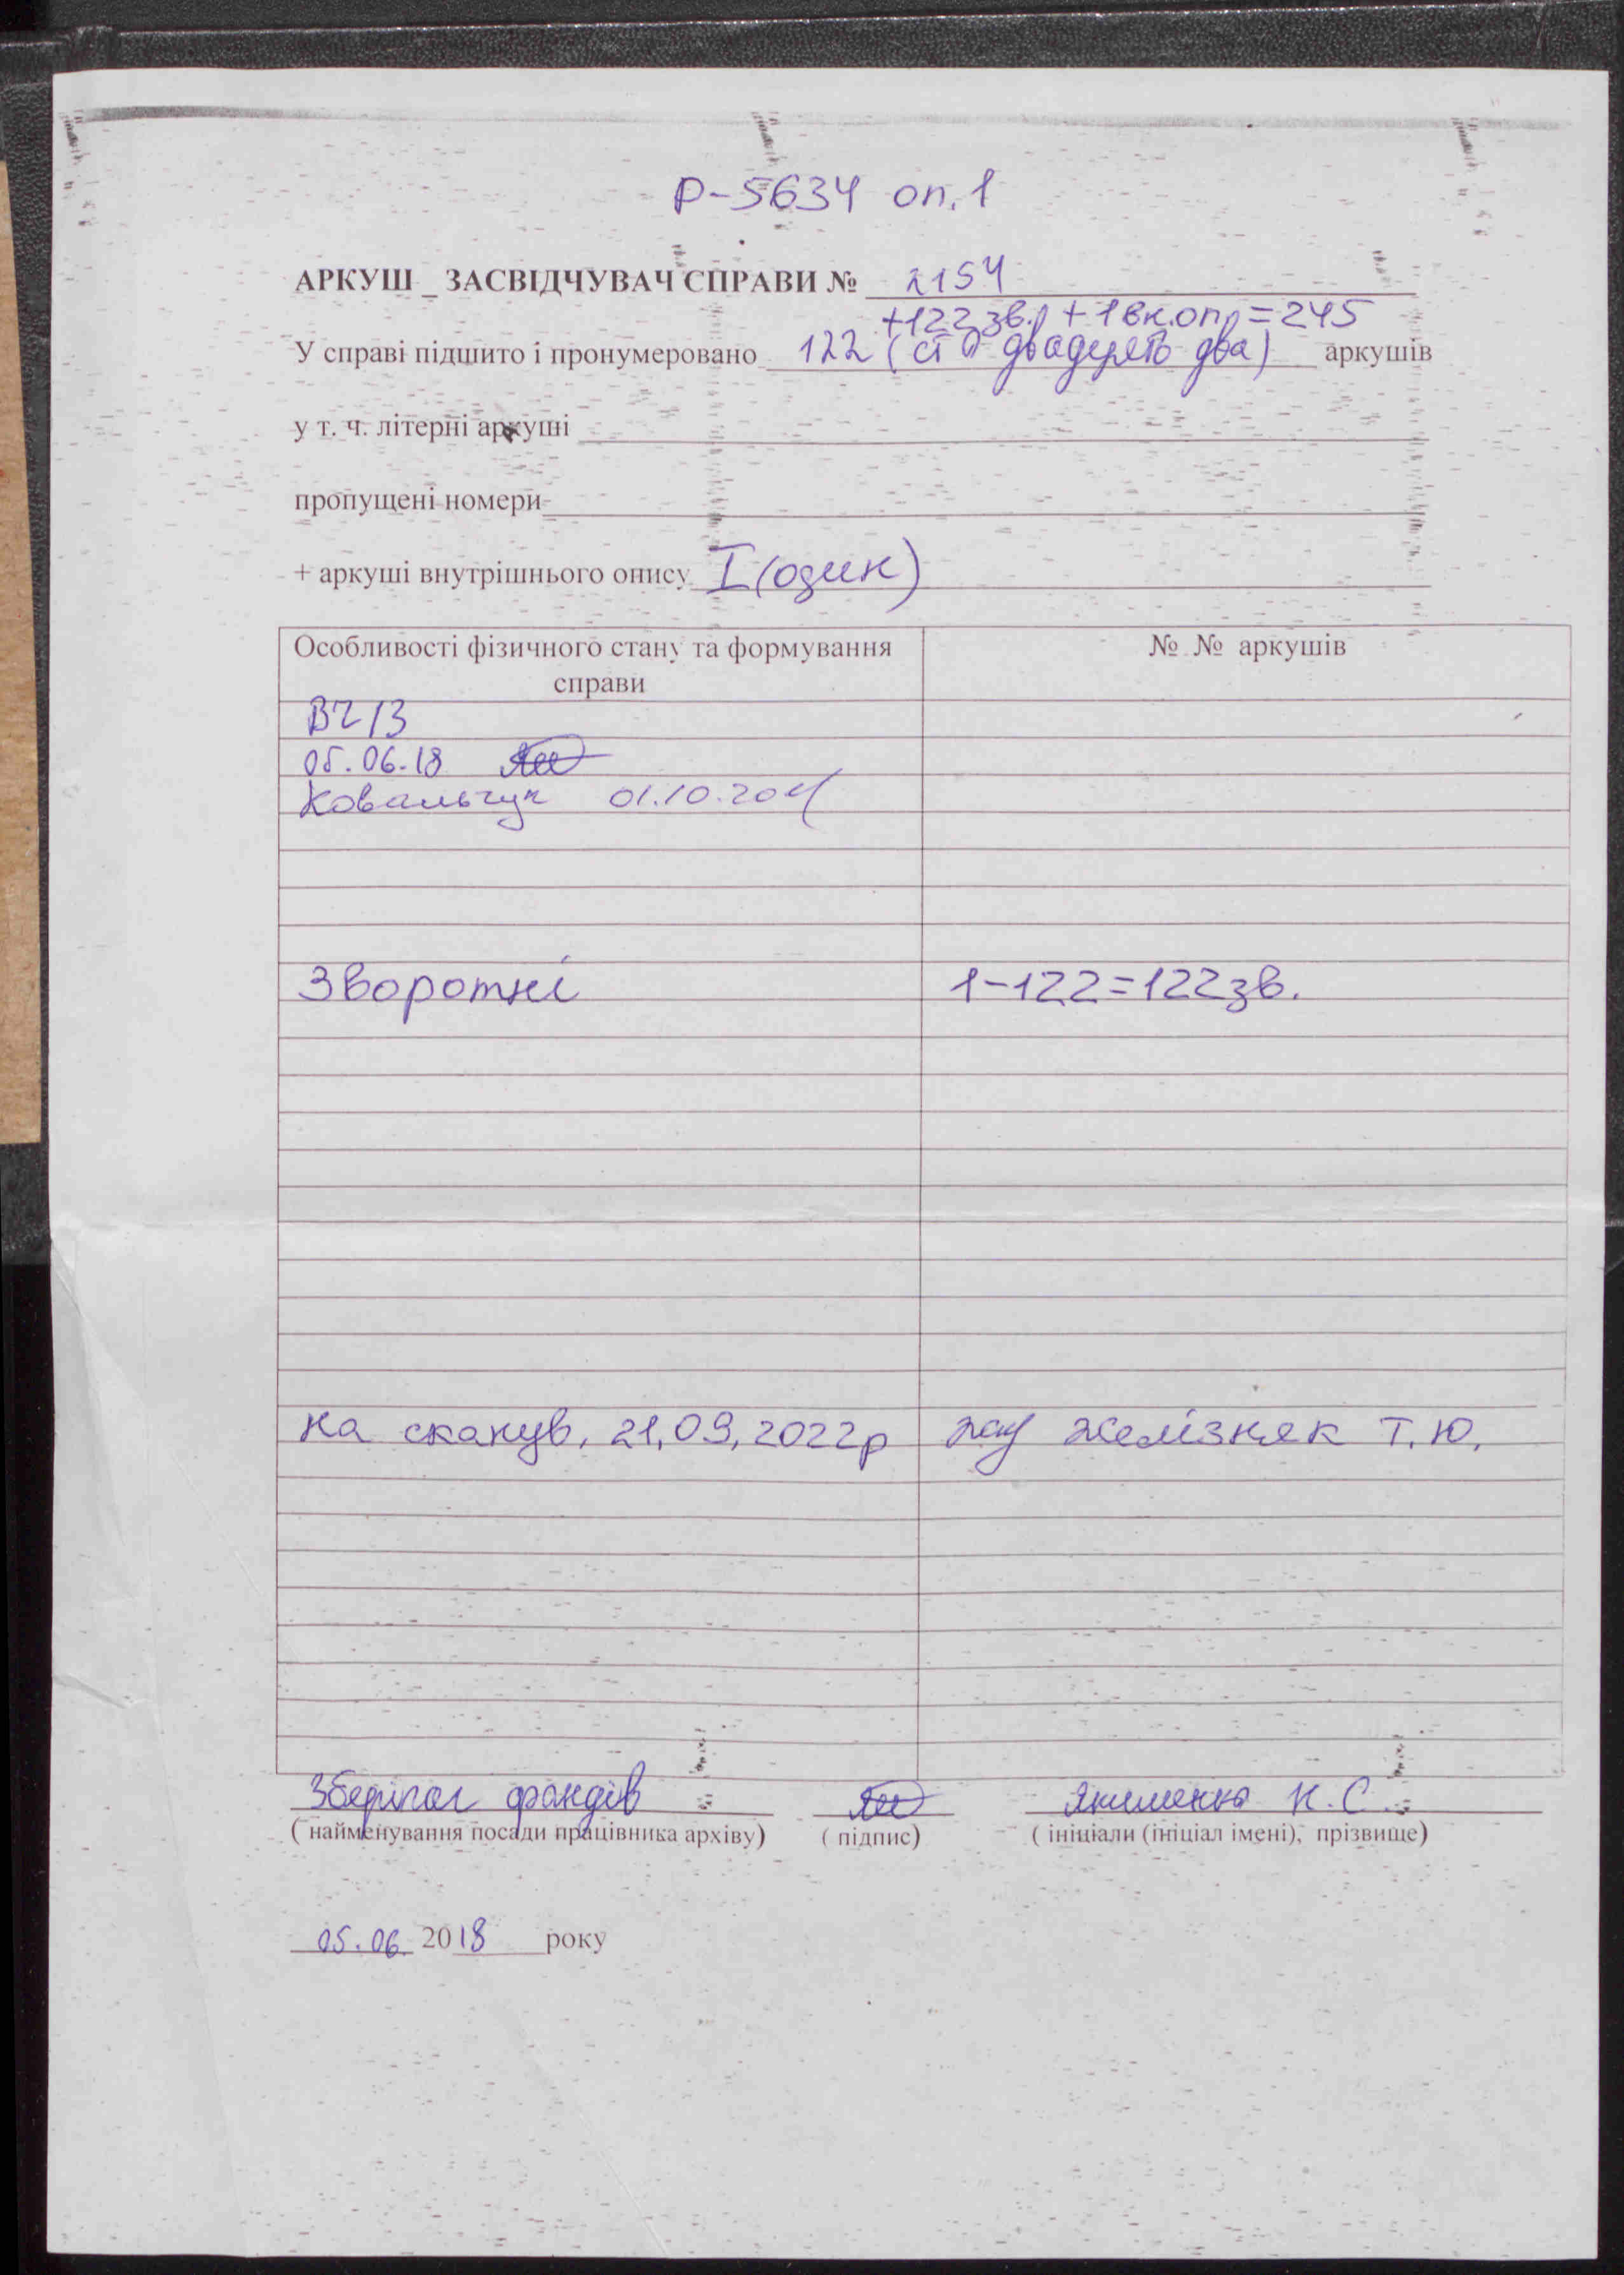 Р-5634 оп.1
АРКУШ _ ЗАСВІДЧУВАЧ СПРАВИ № 2154
+122 зв. + 1 вн.оп = 245
У справі підшито і пронумеровано 122 (сто двадцять два) аркушів
у т. ч. літерні аркуші
пропущені номери
+ аркуші внутрішнього опису I (один)
Особливості фізичного стану та формування справи
№ № аркушів
05.06.18
Ковальчук 01.10.20
Зворотні 1-122=122зв.
на сканув. 21.09.2022р Желізняк Т.Ю.
Зберігач фондів Якименко Н.С.
( найменування посади працівника архіву) ( підпис) ( ініціали (ініціал імені), прізвище)
05.06. 2018 року